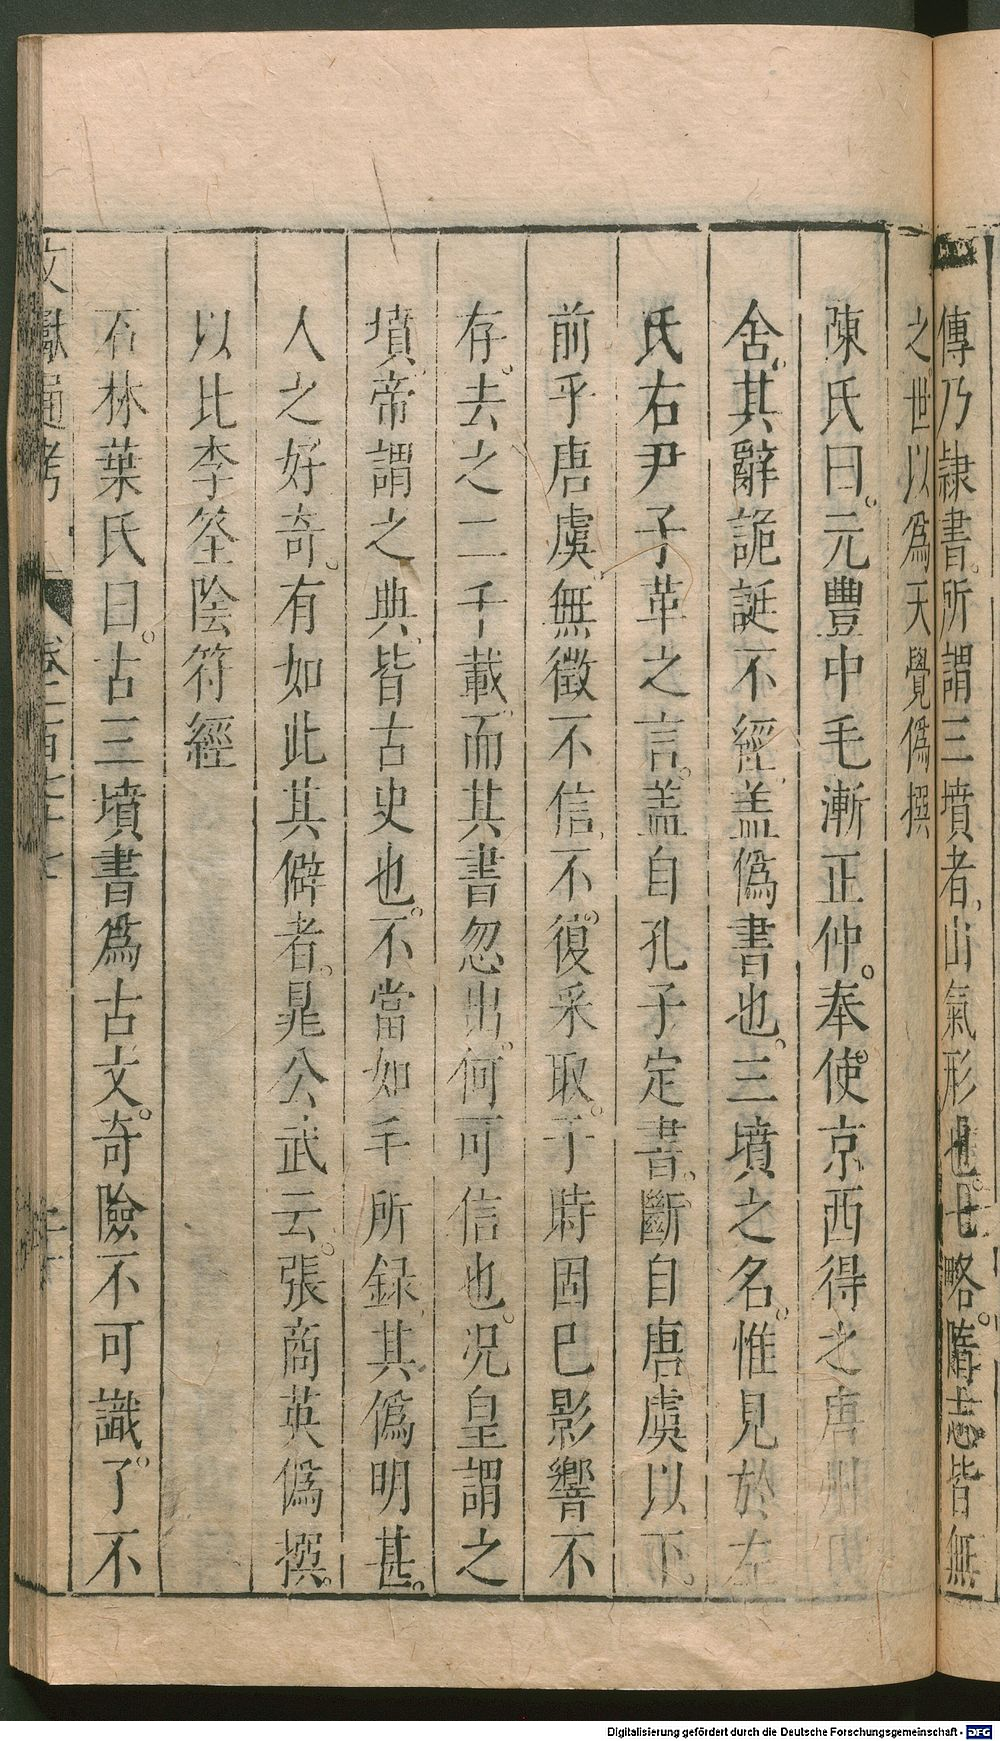 傳乃隷書所謂三墳者山氣形也七略隋志皆無
之世以爲天覺僞撰
陳氏曰元豐中毛漸正仲奉使京西得之唐州民
舍其辭詭誕不經蓋僞書也三墳之名惟見於左
氏右尹子革之言蓋自孔子定書斷自唐虞以下
前乎唐虞無徵不信不復采取于時固已影響不
存去之二千載而其書忽出何可信也况皇謂之
墳帝謂之典皆古史也不當如毛所録其僞明甚
人之好奇有如此其僻者晁公武云張商英僞撰
以比李筌陰符經
石林葉氏曰古三墳書爲古文奇險不可識了不
文獻通考 卷一百七十七
Digitalisierung gefördert durch die Deutsche Forschungsgemeinschaft - DFG